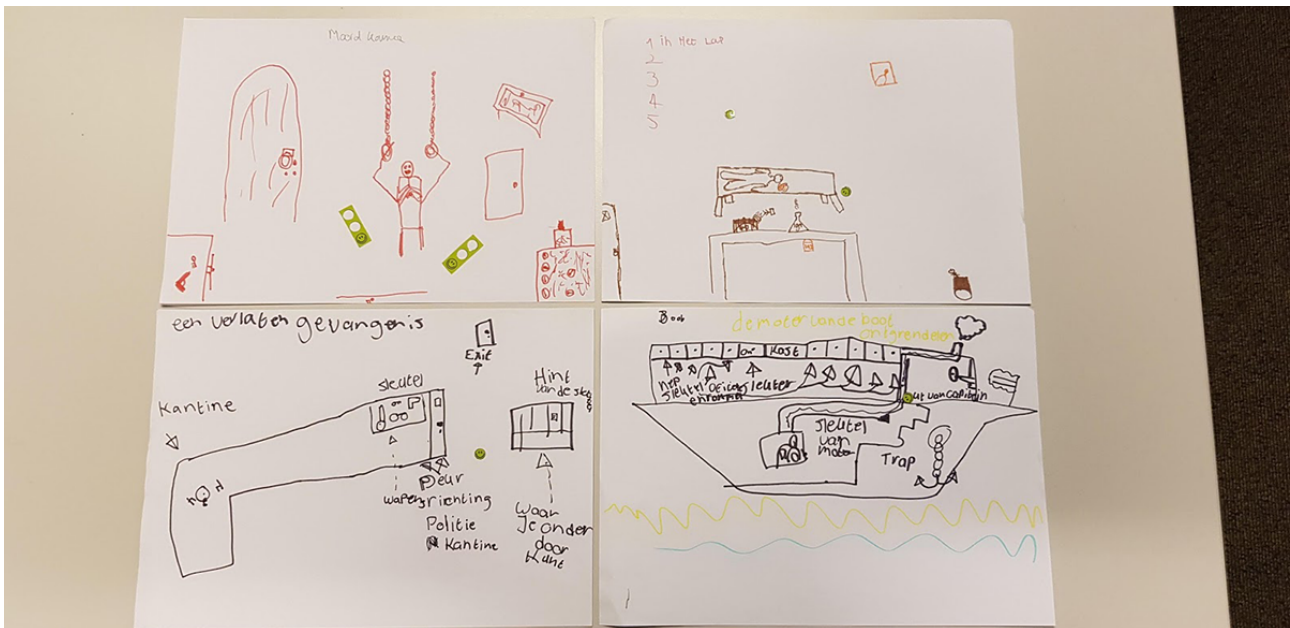 Moord kamer
1 in Het Lab
2
3
4
5
een verlaten gevangenis
Exit
Sleutel
Kantine
Hint
van de
Deur
richting
Politie
Kantine
wapens
waar
Je onder
door
kunt
Boot
de moter van de boot
ontgrendelen
Kast
nep
sleutel
sleutel
hut van Capitain
sleutel
van
moter
Trap